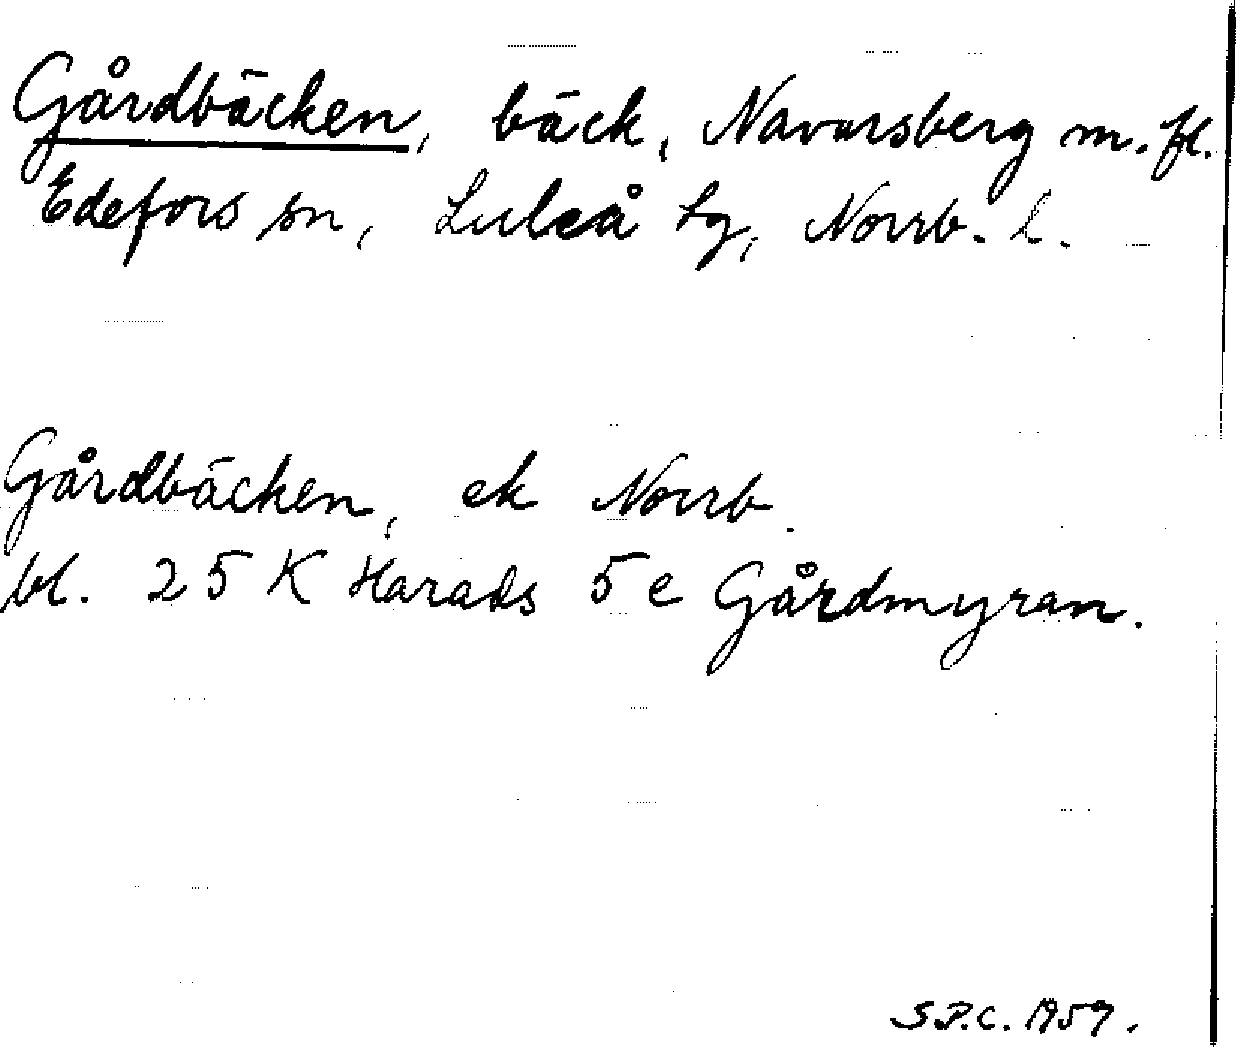 Gårdbäcken, bäck, Navarsberg m. fl.
Edefors sn, Luleå tg, Norrb. l.
Gårdbäcken, ek Norrb.
bl. 25 K Harads 5 e Gårdmyran.
S.P.C. 1959.